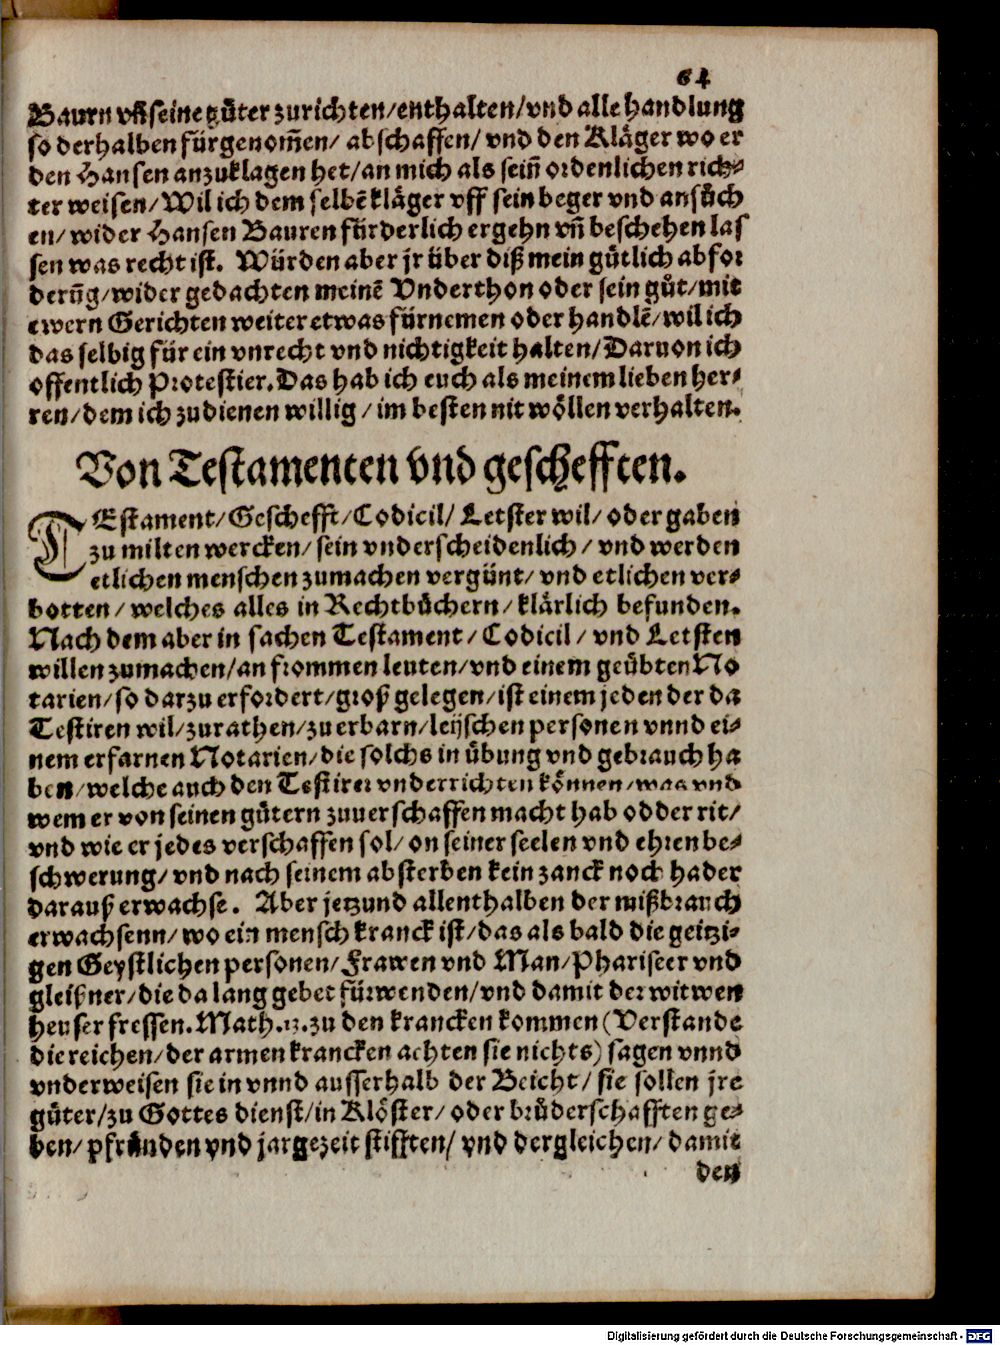 64
Baurn vñ seine gůter zurichten/enthalten/vnd alle handlung
so derhalben fürgenom̃en/ abschaffen/ vnd den Kläger wo er
den Hansen anzuklagen het/an mich als sein̄ ordenlichen rich⸗
ter weisen/Wil ich dem selbē kläger vff sein beger vnd ansůch
en/ wider Hansen Bauren fürderlich ergehn vñ beschehen las
sen was recht ist. Würden aber jr über diß mein gůtlich abfor
derūg/wider gedachten meinē Vnderthon oder sein gůt/mit
ewern Gerichten weiter etwas fürnemen oder handlē/wil ich
das selbig für ein vnrecht vnd nichtigkeit halten/Daruon ich
offentlich Protestier.Das hab ich euch als meinem lieben her⸗
ren/dem ich zudienen willig /im besten nit wöllen verhalten.
Von Testamenten vnd geschefften.
TEstament/Geschefft/Codicil/ Letster wil/ oder gaben
zu milten wercken/ sein vnderscheidenlich / vnd werden
etlichen menschen zumachen vergünt/ vnd etlichen ver⸗
botten/ welches alles in Rechtbůchern/ klärlich befunden.
Nach dem aber in sachen Testament/ Codicil / vnd Letsten
willen zumachen/an frommen leuten/vnd einem geübten No
tarien/so darzu erfordert/groß gelegen/ist einem jeden der da
Testiren wil/zurathen/zu erbarn/leijschen personen vnnd ei⸗
nem erfarnen Notarien/die solchs in übung vnd gebrauch ha
ben/welche auch den Testirer vnderrichten können/was vnd
wem er von seinen gütern zuuerschaffen macht hab odder nit/
vnd wie er jedes verschaffen sol/ on seiner seelen vnd ehren be⸗
schwerung/ vnd nach seinem absterben kein zanck noch hader
darauß erwachse. Aber jetzund allenthalben der mißbrauch
erwachsenn/ wo ein mensch kranck ist/das als bald die geitzi⸗
gen Geystlichen personen/Frawen vnd Man/Phariseer vnd
gleißner/die da lang gebet fürwenden/vnd damit der witwen
heuser fressen.Math.23.zu den krancken kommen (Verstande
die reichen/der armen krancken achten sie nichts) sagen vnnd
vnderweisen sie in vnnd ausserhalb der Beicht/ sie sollen jre
güter/zu Gottes dienst/in Klöster/ oder brůderschafften ge⸗
ben/ pfründen vnd jargezeit stifften/ vnd dergleichen/ damit
den
Digitalisierung gefördert durch die Deutsche Forschungsgemeinschaft - DFG